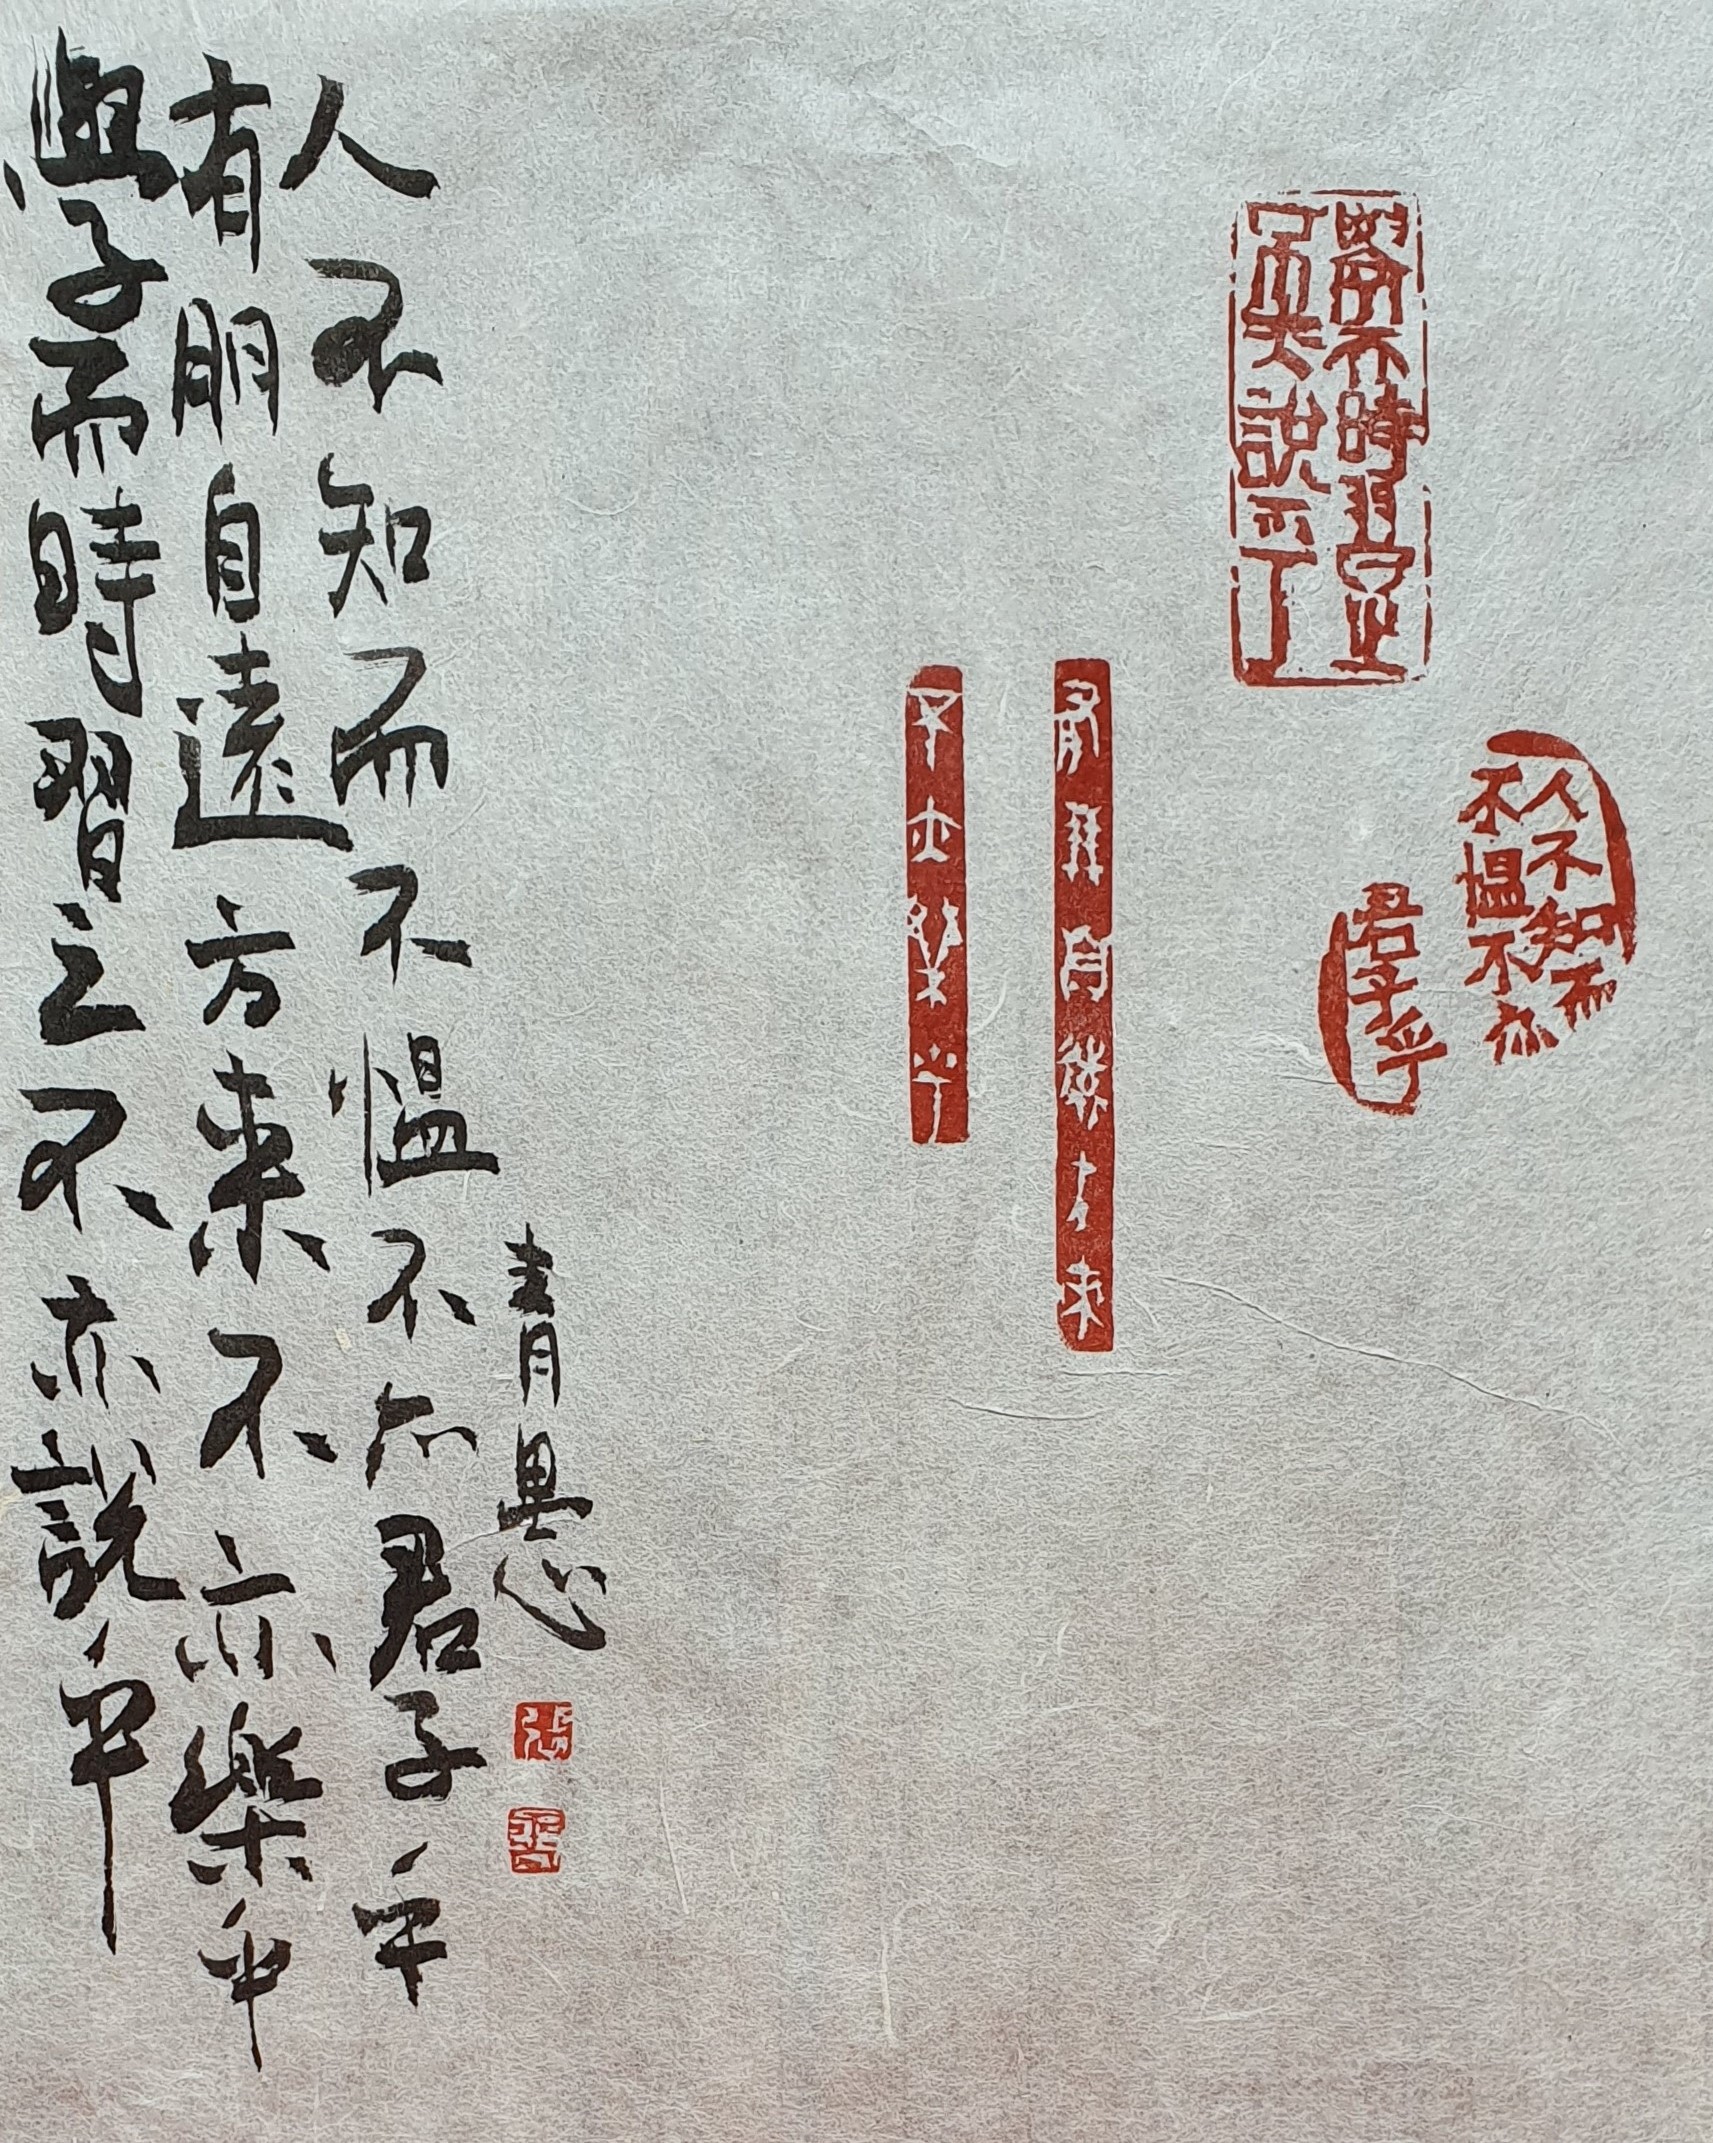 學而時習之不亦說乎
有朋自遠方來不亦樂乎
人不知而不愠不亦君子乎
青愚
學而時習之
不亦說乎
人不知而
不愠不亦
君子乎
有朋自遠方來
不亦樂乎